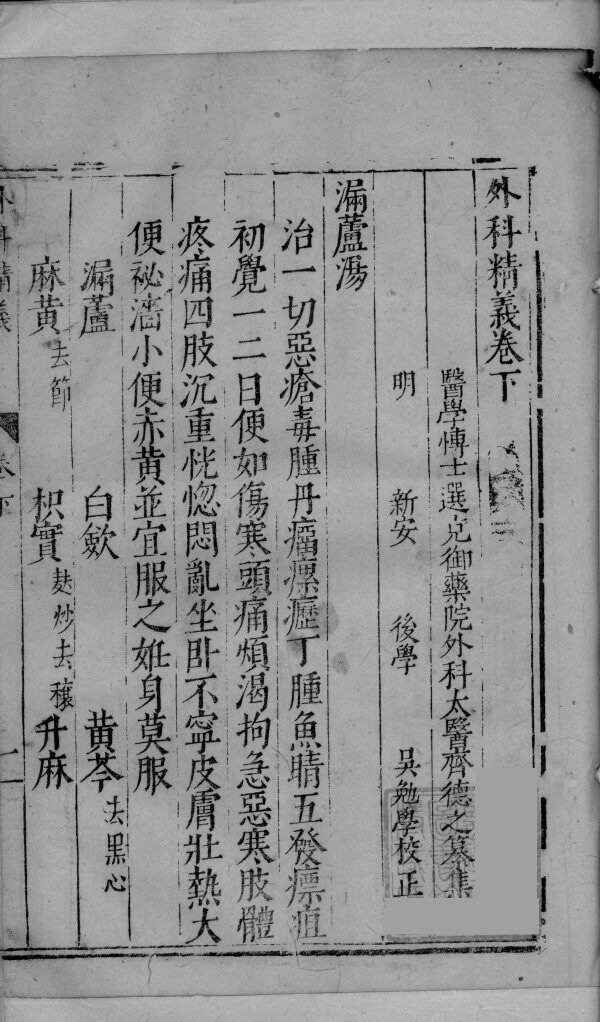 外科精義卷下
醫學博士選充御藥院外科太醫齊德之纂集
明 新安 後學 吳勉學校正
漏蘆湯
治一切惡瘡毒腫丹瘤瘰癧丁腫魚睛五發瘭疽
初覺一二日便如傷寒頭痛煩渴拘急惡寒肢體
疼痛四肢沉重恍惚悶亂坐卧不寧皮膚壯熱大
便祕濇小便赤黃並宜服之姙身莫服
漏蘆 白歛 黃芩去黑心
麻黃去節 枳實麸炒去穰 升麻
外科精義 卷下 一